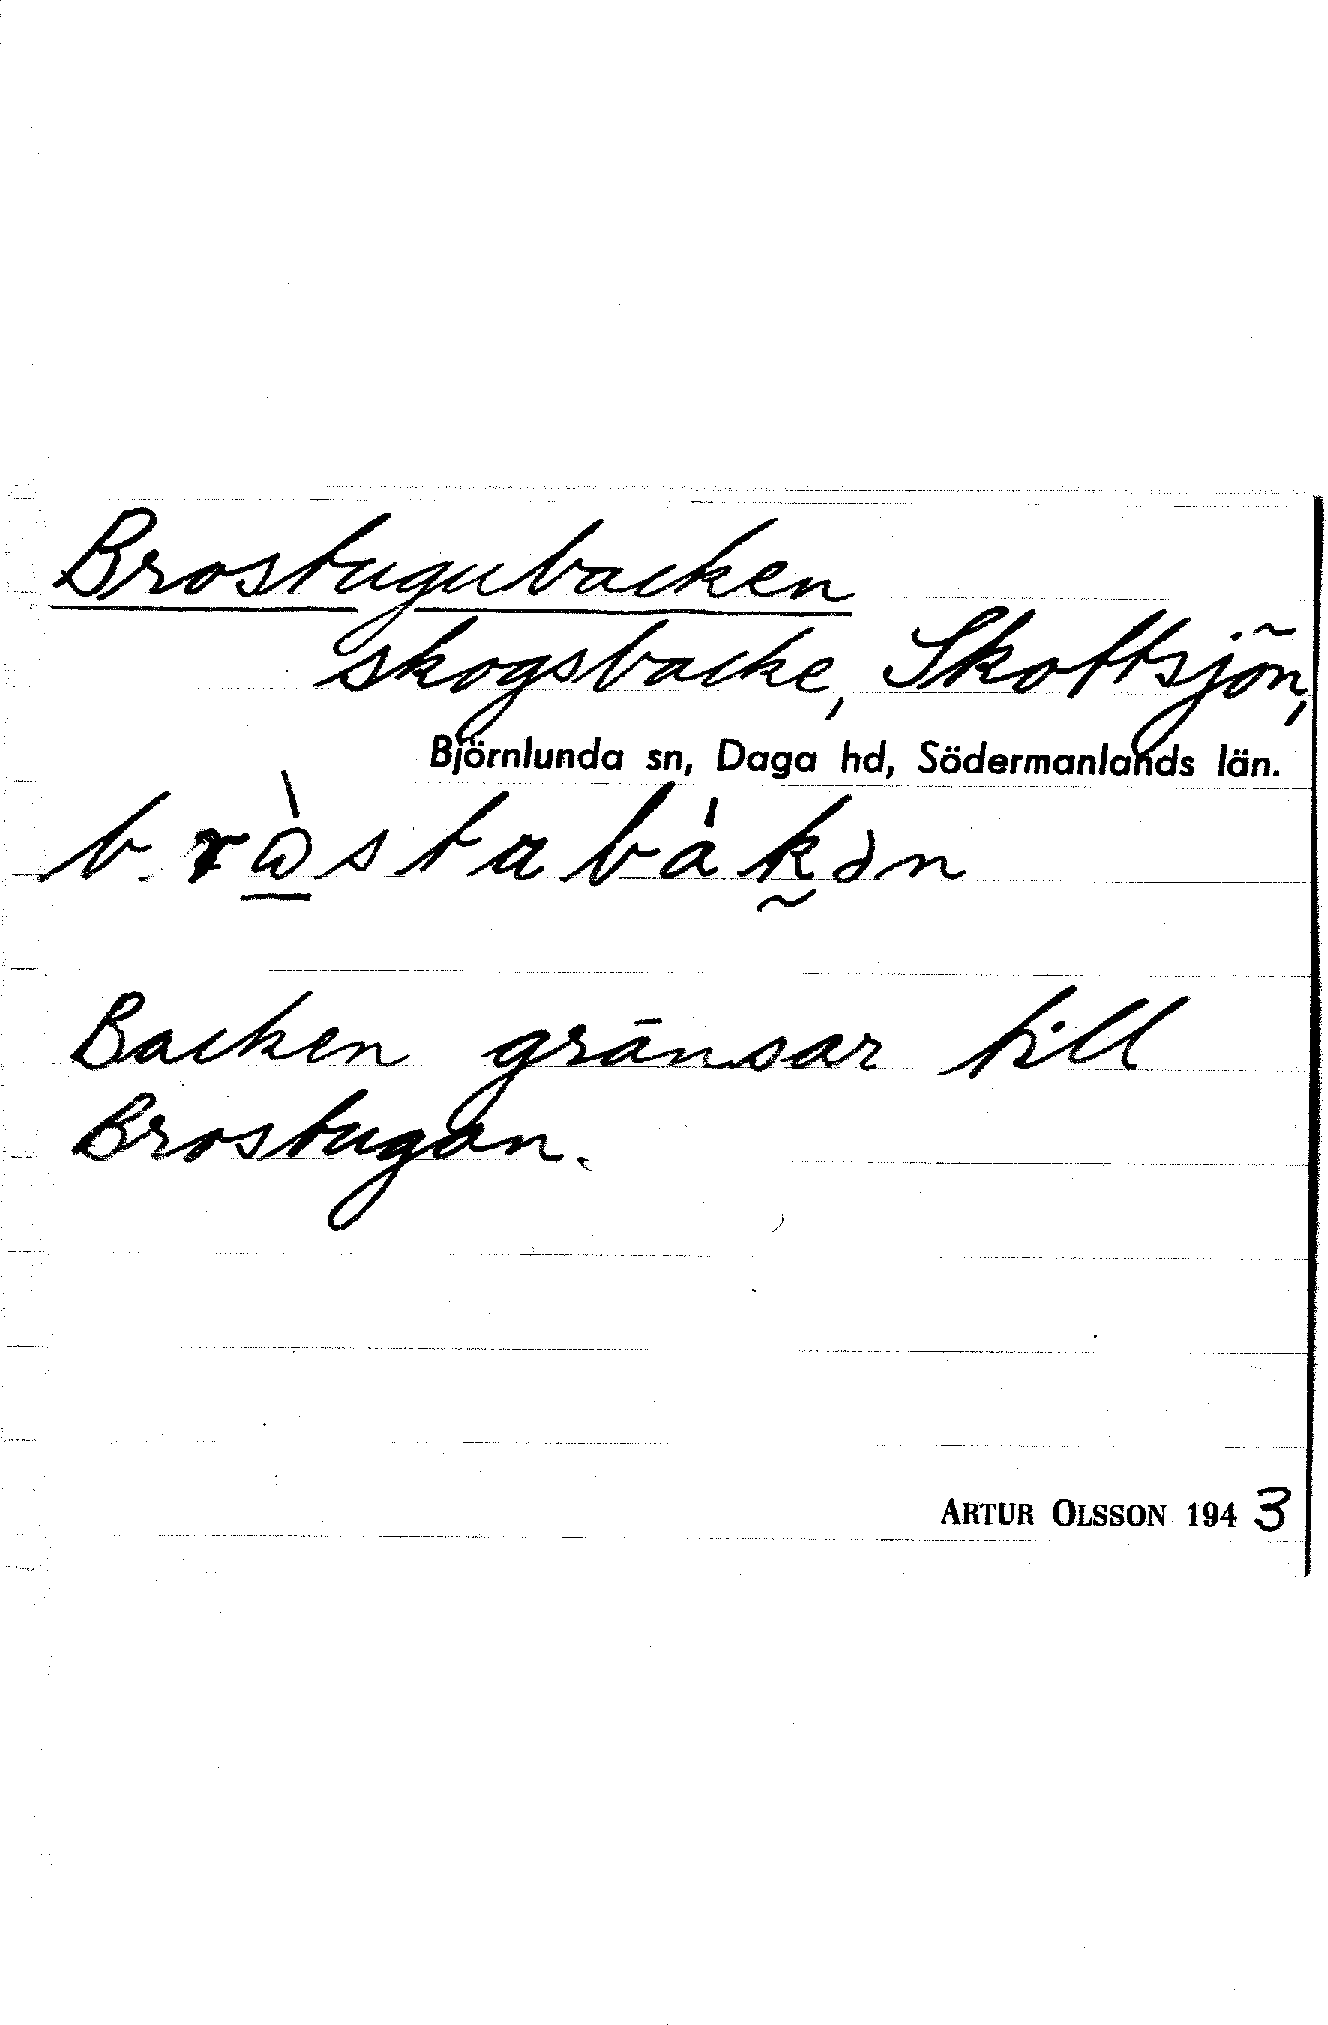 Brostugubacken
skogsbacke, Skottsjön,
Björnlunda sn, Daga hd, Södermanlands län.
Backen gränsar till
Brostugan.
ARTUR OLSSON 1943